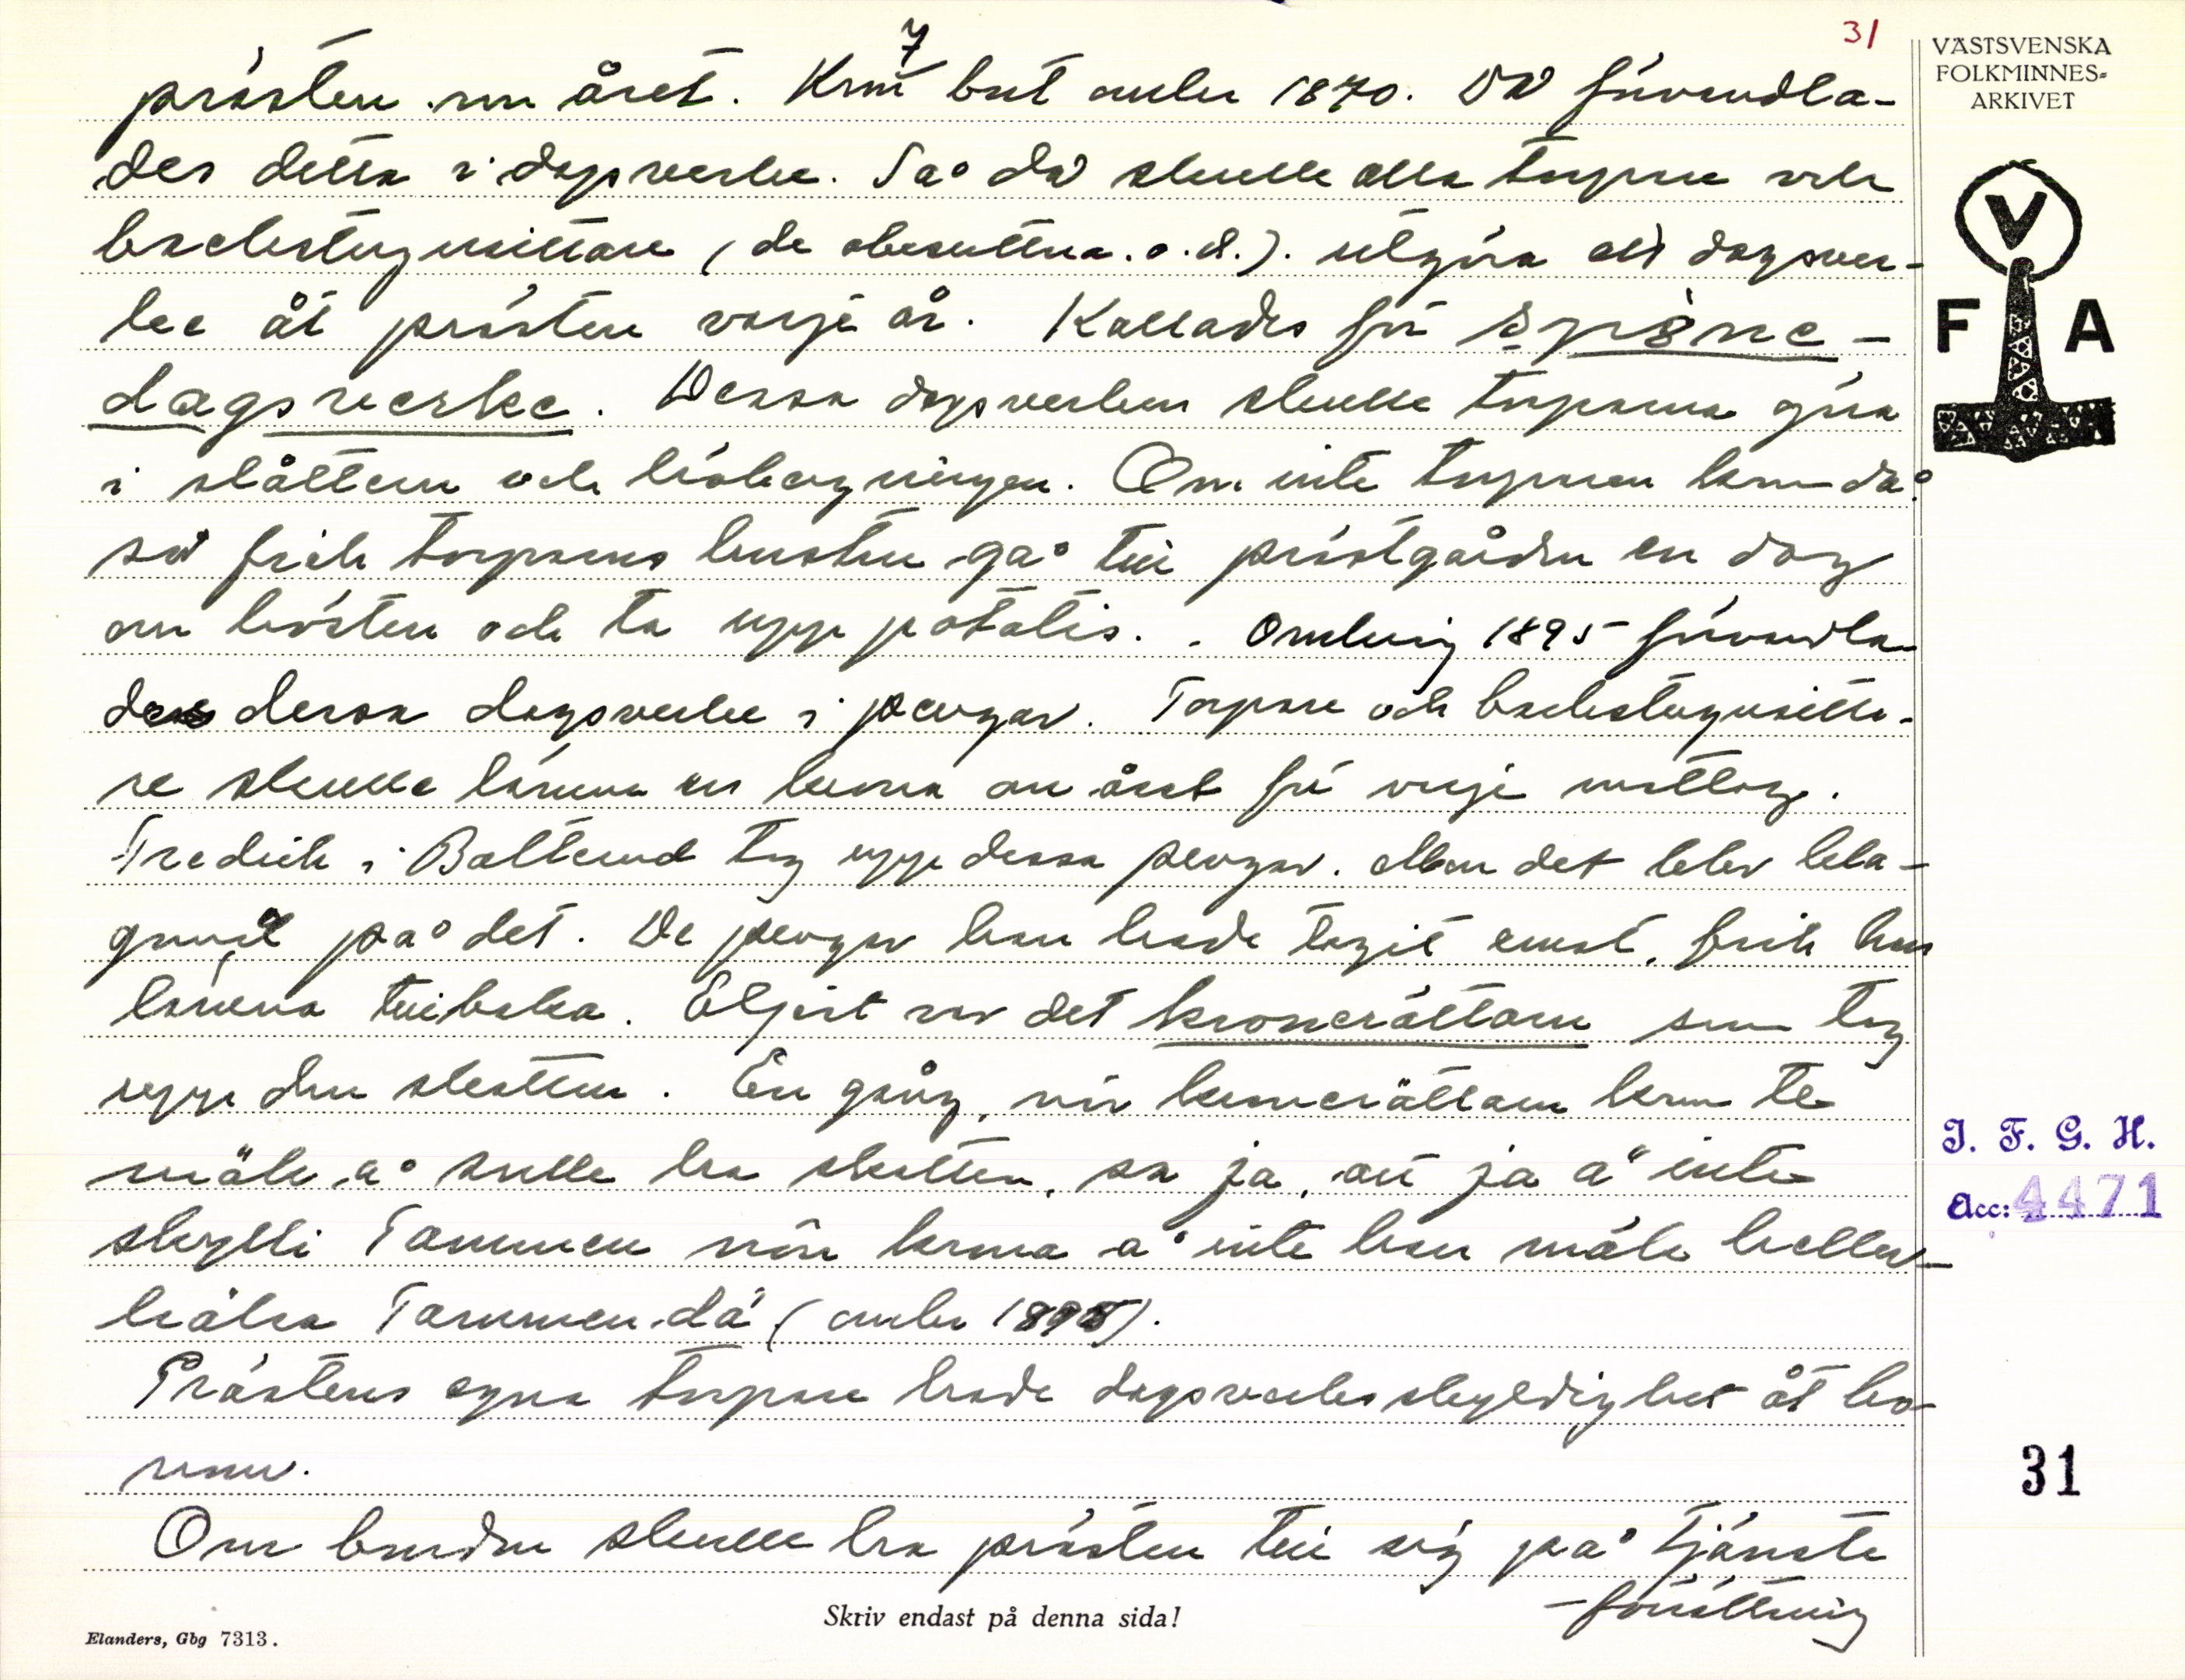 31
7
prästen om året. Kom bort under 1870. Då förvandla-
des detta i dagsverke. Så då skulle alla torpare och
backstugusittare (de obesuttna. o.d.). utgöra ett dagsver-
ke åt prästen varje år. Kallades för spöne-
dagsverke. Dessa dagsverken skulle torparna göra
i slåttern och höbergningen. Om inte torparen kom då
så fick torparens hustru gå till prästgården en dag
om hösten och ta upp potatis. . Omkring 1895 förvandla-
des dessa dagsverke i pengar. Torpare och backstugusitta-
re skulle lämna en krona om året för varje mattlag.
Fredrik i Balterud tog upp dessa pengar. Men det blev kla-
gomål på det. De pengar han hade tagit emot, fick han
lämna tillbaka. Eljest var det kronerättarn som tog
upp den skatten. En gång, när kronerättarn kom te
mäk å skulle ha skatten, sa ja, att ja ä inte
skylli Tammen nôn krona å inte han mäk heller
hälsa Tammen dä (under 1895).
Prästens egna torpare hade dagsverksskyldighet åt ho-
nom.
Om bonden skulle ha prästen till sig på tjänste
-förrättning
VÄSTSVENSKA
FOLKMINNES-
ARKIVET
V
F A
I. F. G. H.
Acc: 4471
31
Skriv endast på denna sida!
Elanders, Gbg 7313.